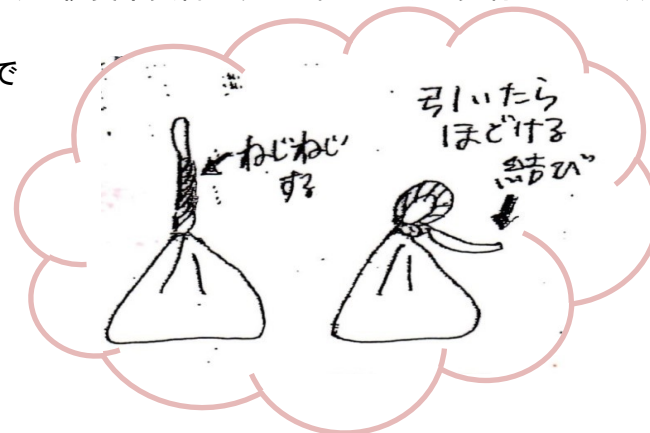 で
ねじねじ
する
引いたら
ほどける
結び